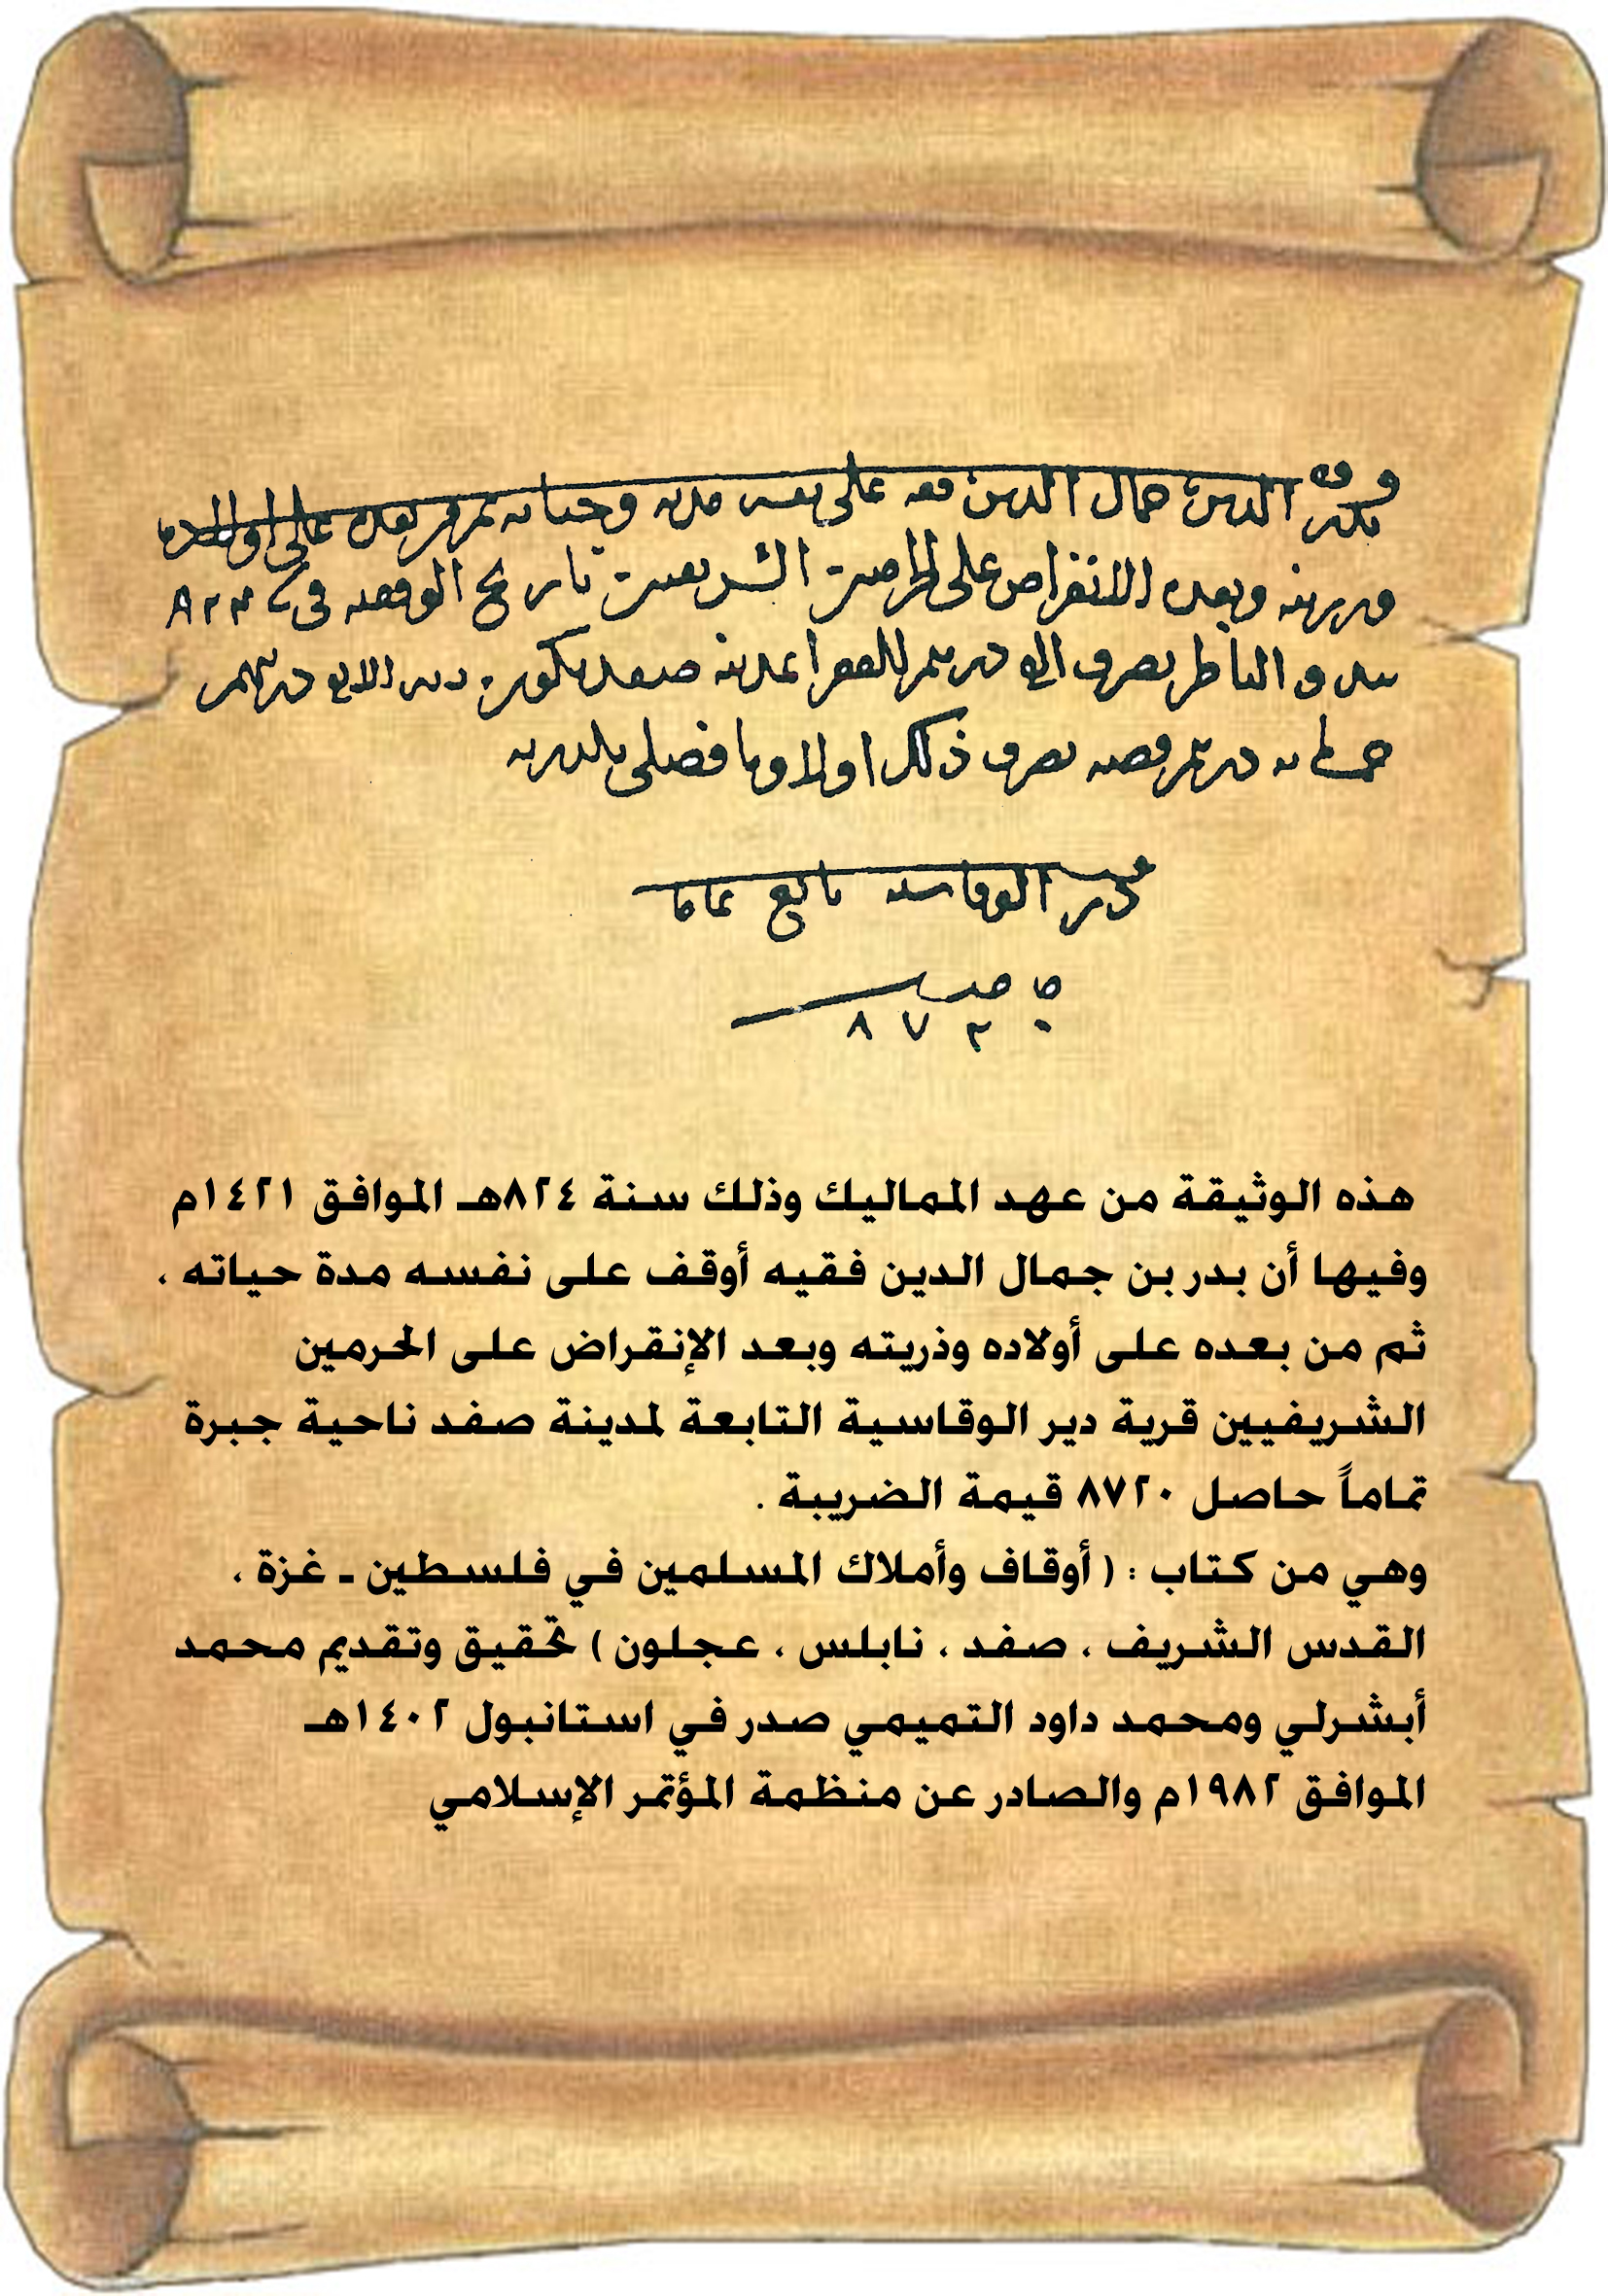 وقف
بدر الدين جمال الدين فقيه على نفسه مدة وحياته ثم من بعده على اولاده
وذريته وبعد الانقراض على الحرمين الشريفين تاريخ الوقفيه في
الناظر يصرف الى للفقرا بمدينة صفد
يصرف ذلك اولا وما فضل
دير الوقاسيه تابع تماما
حاصل
٨٧٢٠
هذه الوثيقة من عهد المماليك وذلك سنة ٨٢٤هـ الموافق ١٤٢١م
وفيها أن بدر بن جمال الدين فقيه أوقف على نفسه مدة حياته ،
ثم من بعده على أولاده وذريته وبعد الإنقراض على الحرمين
الشريفيين قرية دير الوقاسية التابعة لمدينة صفد ناحية جبرة
تماماً حاصل ٨٧٢٠ قيمة الضريبة .
وهي من كتاب : ( أوقاف وأملاك المسلمين في فلسطين ـ غزة ،
القدس الشريف ، صفد ، نابلس ، عجلون ) تحقيق وتقديم محمد
أبشرلي ومحمد داود التميمي صدر في استانبول ١٤٠٢هـ
الموافق ١٩٨٢م والصادر عن منظمة المؤتمر الإسلامي